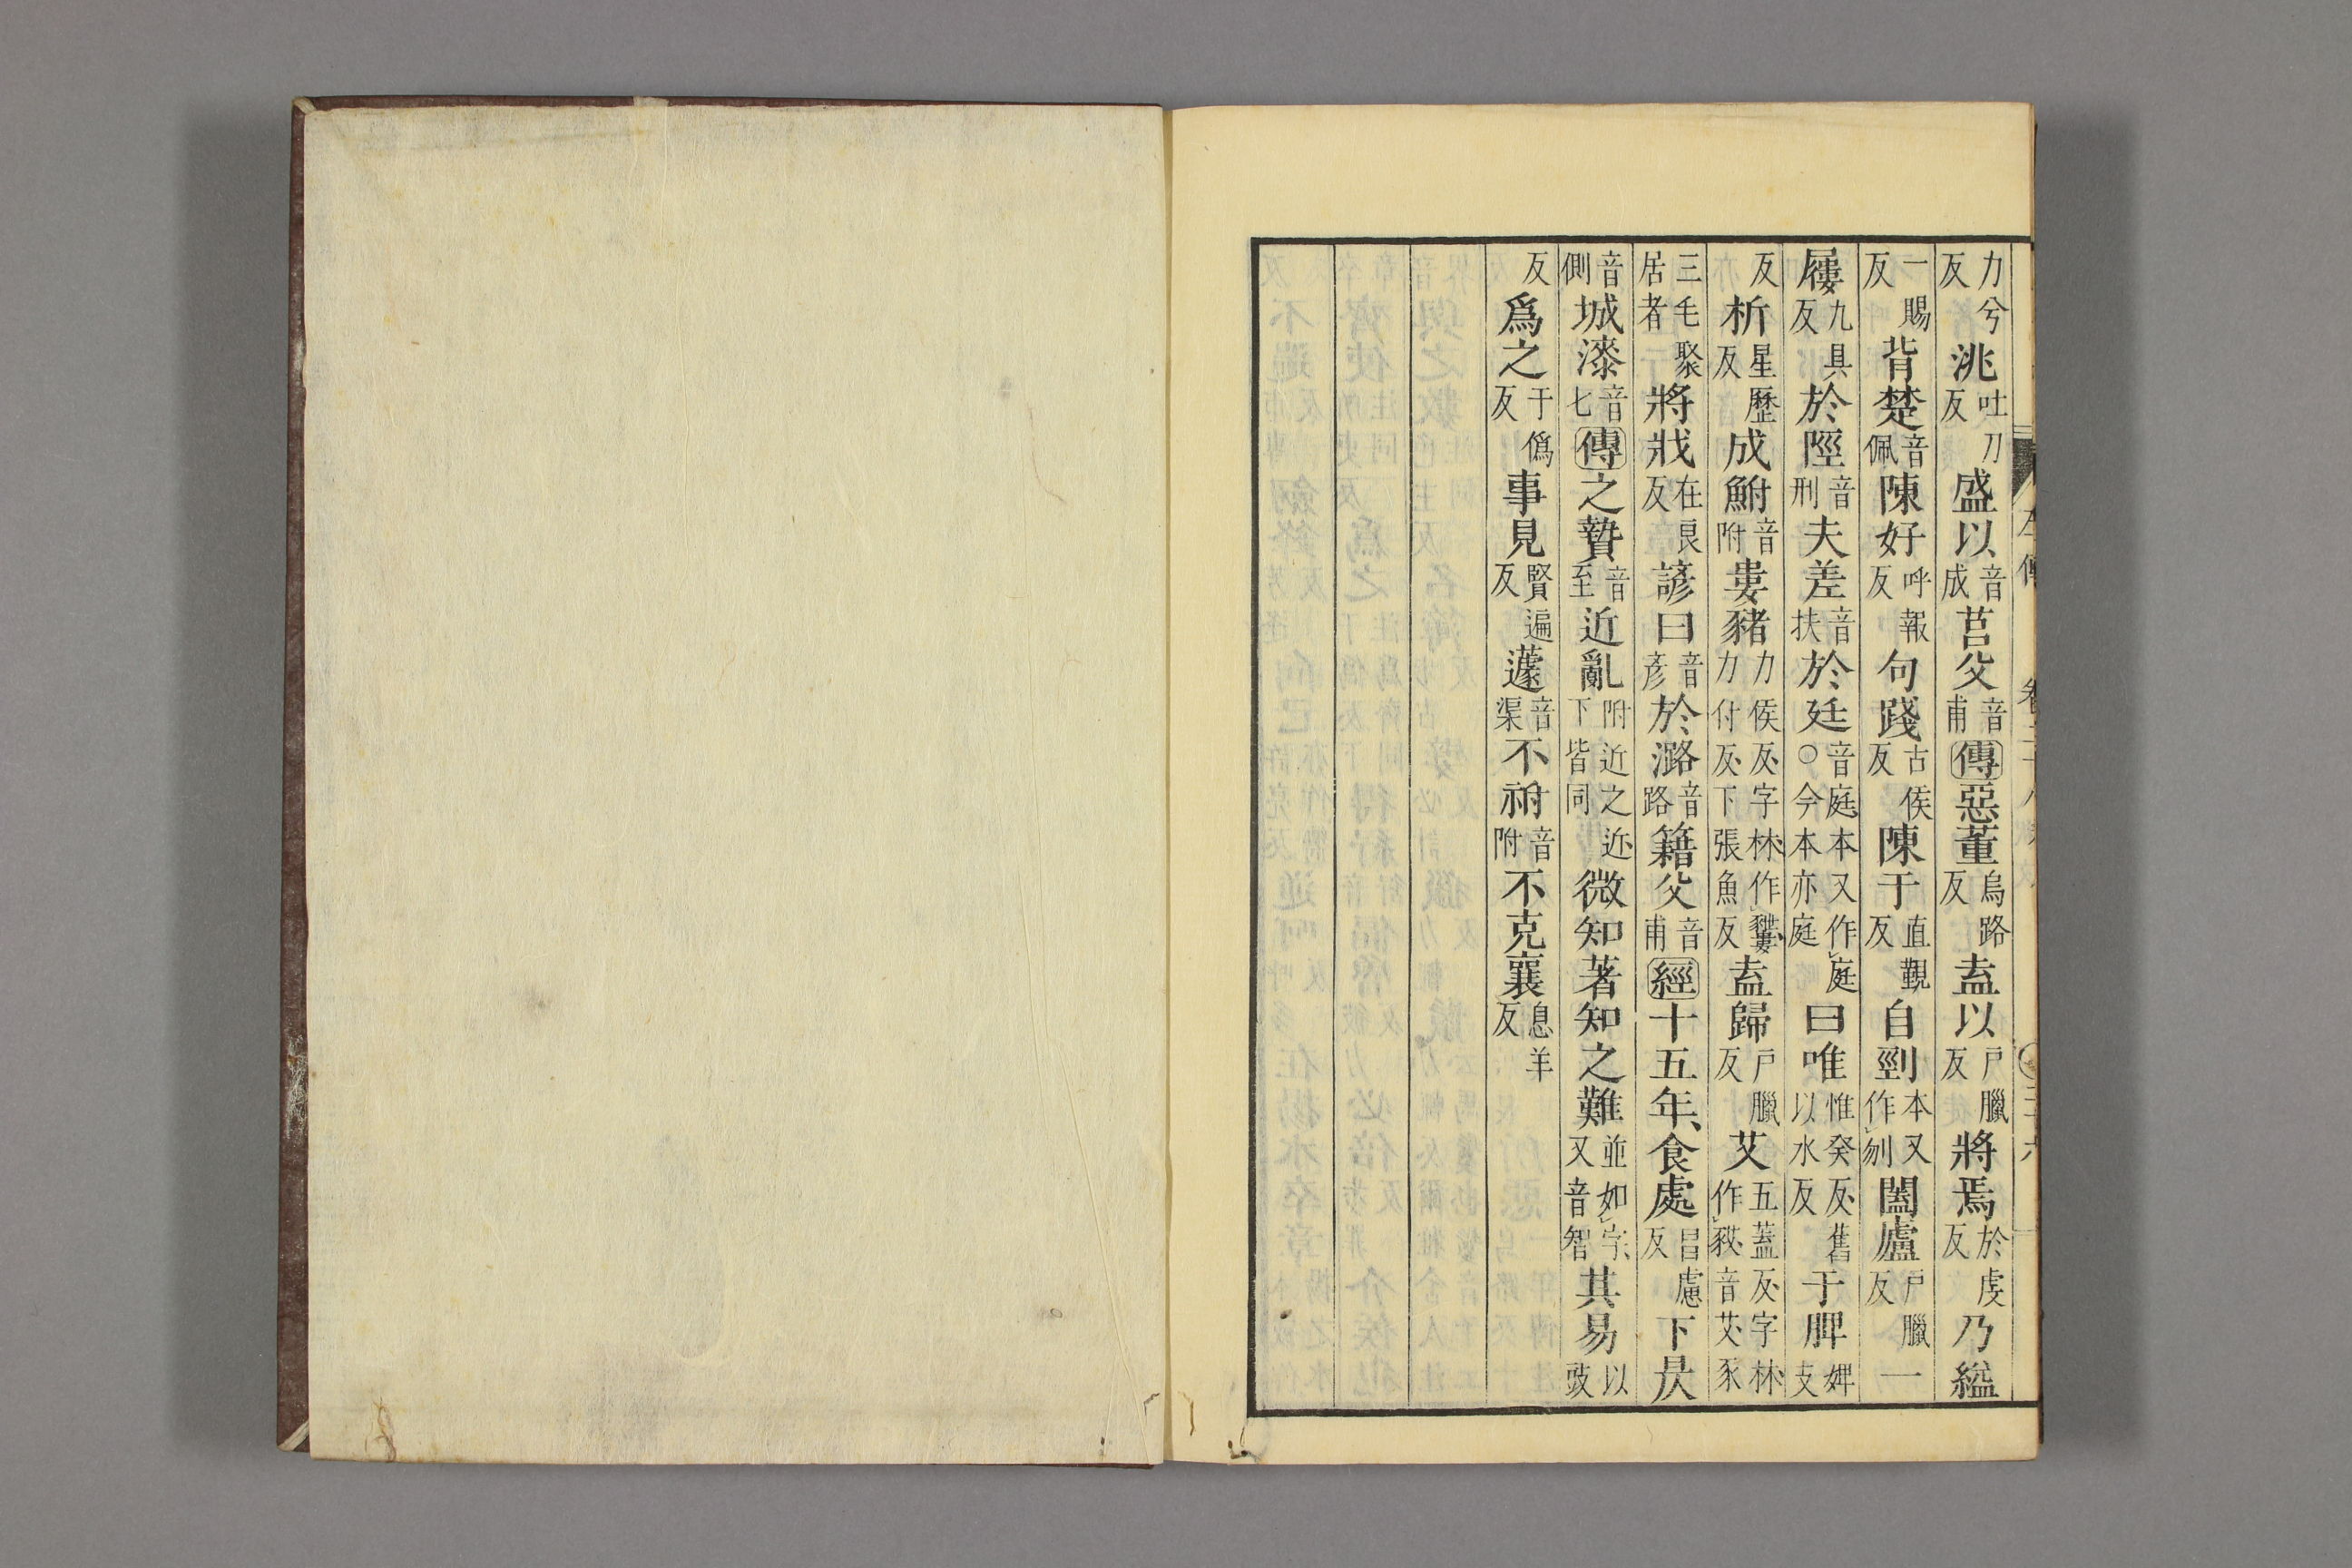 力兮反洮吐刀反盛以音成莒父音甫傳惡董烏路反盍以戶臘反將焉於虔反乃縊
一賜反背楚音佩陳好呼報反句踐古侯反陳于直覲反自剄本又作刎闔廬戶臘反一
屨九具反於陘音刑夫差音扶於廷音庭本又作庭○今本亦庭曰唯惟癸反舊以水反于脾婢支
反析星歷反成鮒音附婁豬力侯反字林作𧱏力付反下張魚反盍歸戶臘反艾五蓋反字林作豥音艾豕
三毛聚居者將戕在良反諺曰音彥於潞音路籍父音甫經十五年食處昌慮反下昃
音側城漆音七傳之贄音至近亂附近之近下皆同微知著知之難並如字又音智其易以豉
反爲之于僞反事見賢遍反蘧音渠不祔音附不克襄息羊反